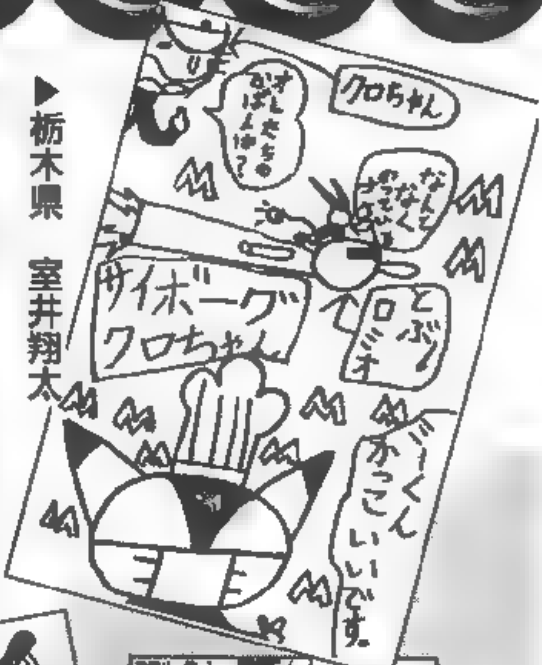 ▶栃木県 室井翔太
クロちゃん
オレたちの
でばんは?
なんて
なくな
とぶ!
ロミオ
サイボーグ
クロちゃん
ゴーくん
かっこいいです。